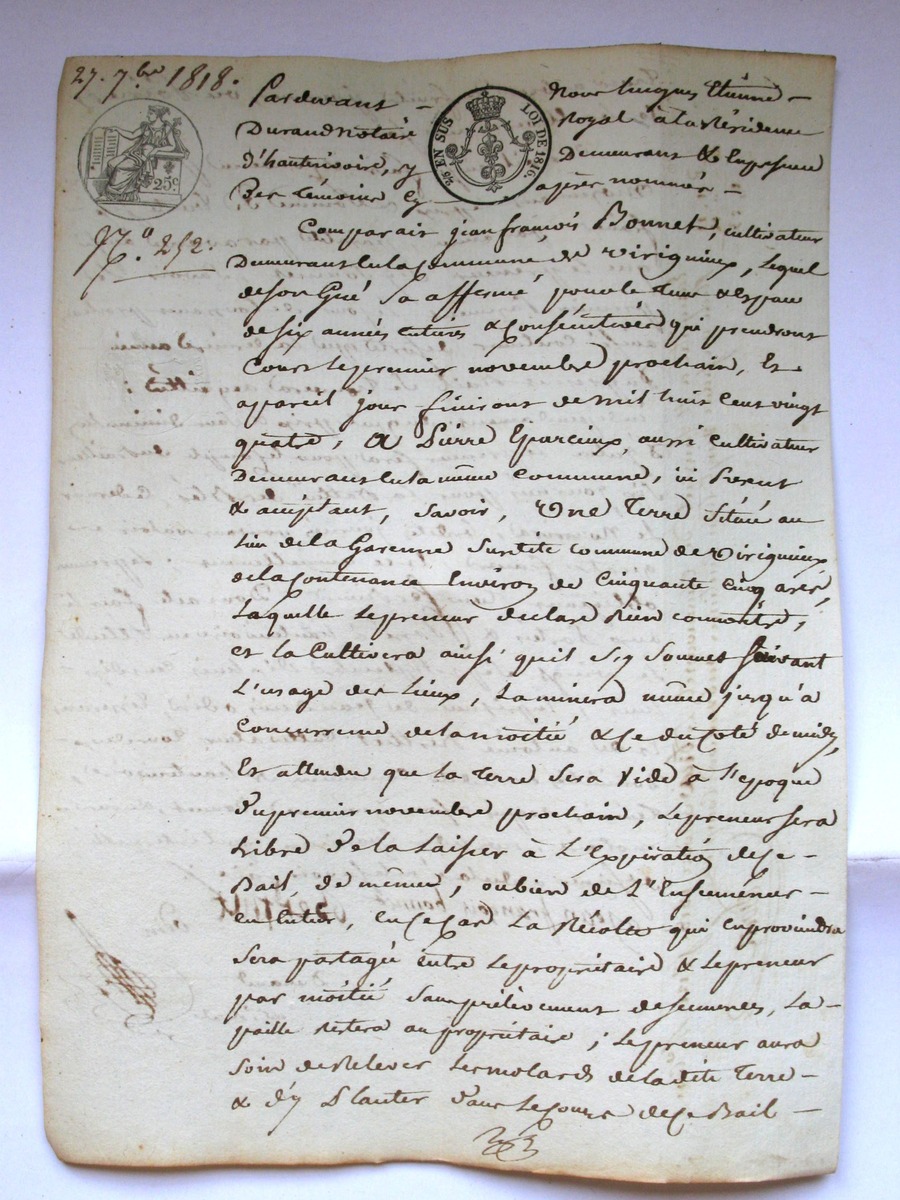 27. 7bre 1818.
25c
25 EN SUS LOI DE 1816.
No. 252.
Pardevant — Nous Jacques Etienne —
Durand Notaire Royal à la Résidence
d'hauterivoire, y Demeurant & En présence
Des témoins Cy — après nommés —
Comparait jean françois Bonnet, cultivateur
Demeurant En la Commune de Viriginieux, Lequel
de son Gré a affermé pour le tems & Espace
de six années entieres & Consécutives qui prendront
Cours le premier novembre prochain, Et
apareil jour finiront de mil huit Cent vingt
quatre, A Pierre Eparcieux, aussi cultivateur
Demeurant En la même Commune, ici Présent
& acceptant, Savoir, Une Terre Située au
lieu de la Garenne Sur dite commune de Viriginieux
de la Contenance Environ de Cinquante Cinq ares,
Laquelle le preneur declare bien connoitre,
et la Cultivera ainsi quil s'y Soumet Suivant
L'usage des Lieux, La minera même jusqu'à
Concurrence de la moitié & Ce du Coté de midy,
Et attendu que la Terre sera Vide à l'époque
du premier novembre prochain, Le preneur sera
Libre de la Laisser à L'Expiration de Ce —
Bail, de même, ou bien de L'Ensemencer —
En Entier, En Ce Cas La Récolte qui En proviendra
Sera partagée entre Le propriétaire & Le preneur
par moitié Sans prélèvement de semences, La —
paille restera au propriétaire ; Le preneur aura
Soin de Relever Les molards de la dite Terre —
& d'y Planter dans Le Cours de Ce Bail —